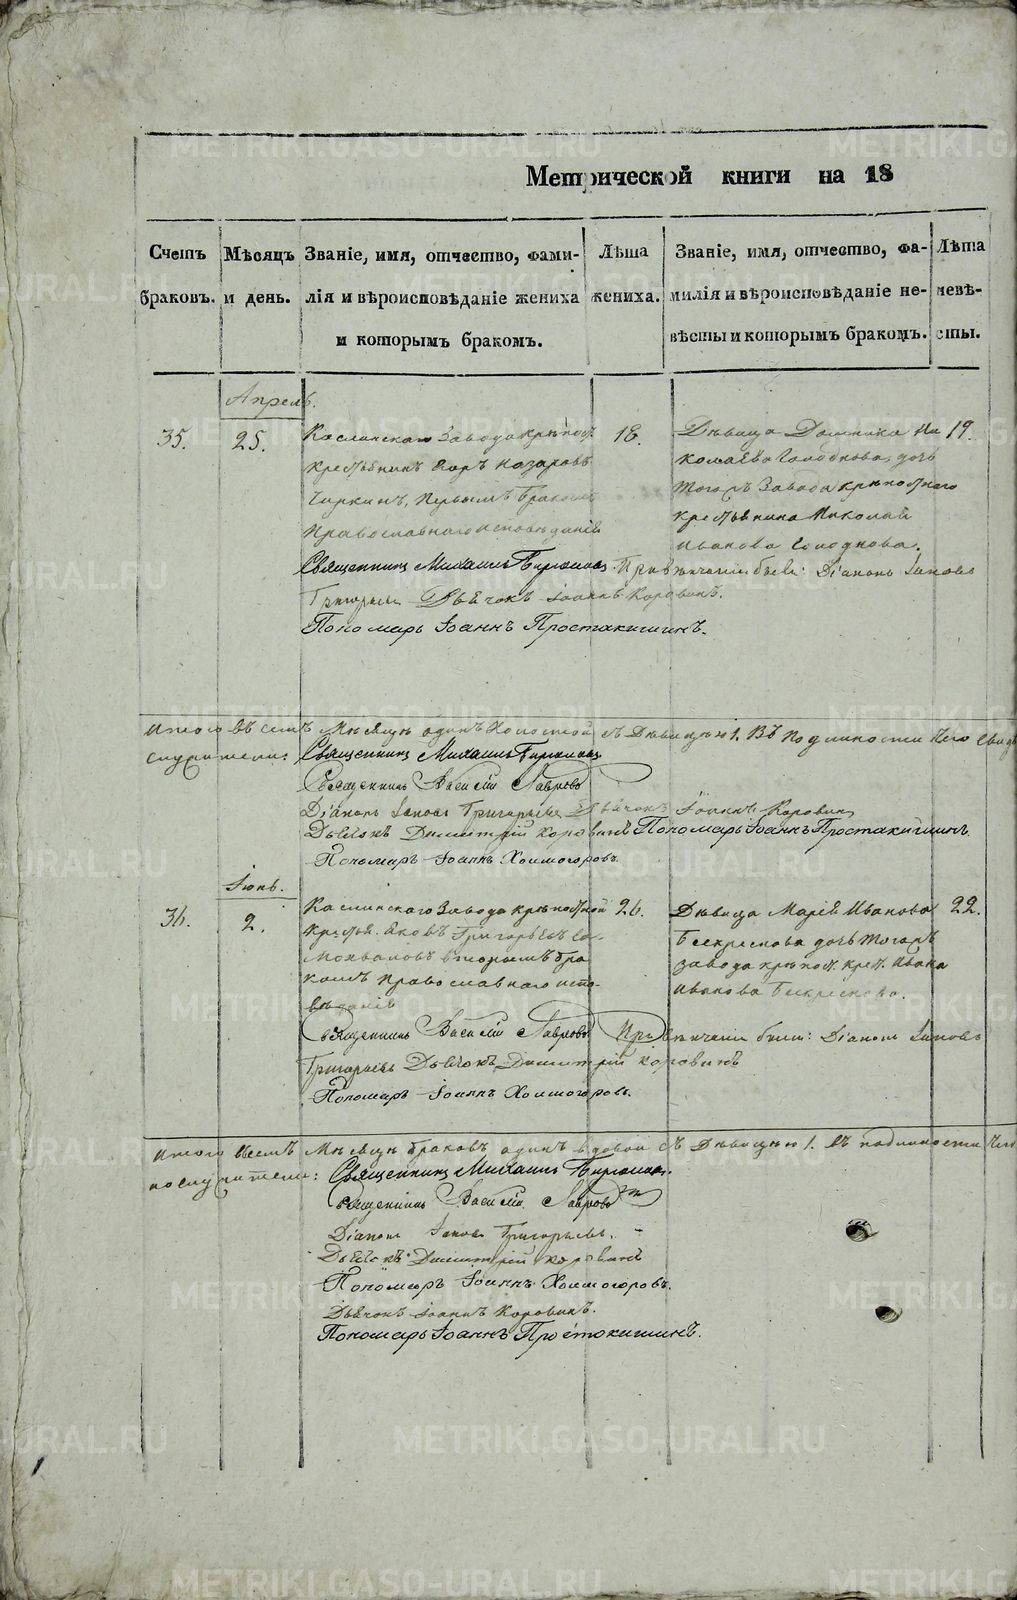 Метрической книги на 18
Счетъ браковъ.
Мѣсяцъ и день.
Званіе, имя, отчество, фами-
лія и вѣроисповѣданіе жениха
и которымъ бракомъ.
Лѣта жениха.
Званіе, имя, отчество, фа-
милія и вѣроисповѣданіе не-
вѣсты и которымъ бракомъ.
Лѣта невѣ-
сты.
Апрель.
35.
25.
Каслинскаго Завода крѣпост.
крестьянинъ Егоръ Назаровъ
Чиркинъ, первымъ бракомъ
Православнаго исповѣданія
18.
Дѣвица Домника Ни
колаева Голодно̀ва, дочь
тогожъ Завода крѣпостнаго
крестьянина Николай
Иванова Голоднова.
19.
Священникъ Михаилъ Привѣнчаніи были: Діаконъ Іаковъ
Григорьевъ Дьячокъ Іоаннъ Коровинъ.
Пономарь Іоаннъ Простакишинъ.
Итого въ семъ Мѣсяцѣ одинъ Холостой съ Дѣвицею 1. Въ подлинности чего
Священникъ Михаилъ
Священникъ Василій Лавровъ
Діаконъ Іаковъ Григорьевъ Дьячокъ Іоаннъ Коровинъ
Дьячокъ Димитрій Коровинъ Пономарь Іоаннъ Простакишинъ
Пономарь Іоаннъ Холмогоровъ
Іюнь.
36.
2.
Каслинскаго Завода крѣпостной
крестья. Яковъ Григорьевъ Са-
мохваловъ вторымъ бра
комъ православнаго испо-
вѣданія
26.
Дѣвица Марія Иванова
Бескреснова дочь тогожъ
завода крѣпост. крест. Ивана
Иванова Бескреснова.
22.
Священникъ Василій Лавровъ Привѣнчаніи были: Діаконъ Іаковъ
Григорьевъ Дьячокъ Димитрій Коровинъ
Пономарь Іоаннъ Холмогоровъ.
Итого Всемъ Мѣсяцѣ браковъ одинъ вдовой съ Дѣвицею 1. Въ подлинности чего
Священникъ Михаилъ
Священникъ Василій Лавровъ
Діаконъ Іаковъ Григорьевъ.
Дьячокъ Димитрій Коровинъ
Пономарь Іоаннъ Холмогоровъ.
Дьячокъ Іоаннъ Коровинъ.
Пономарь Іоаннъ Простокишинъ.
METRIKI.GASO-URAL.RU